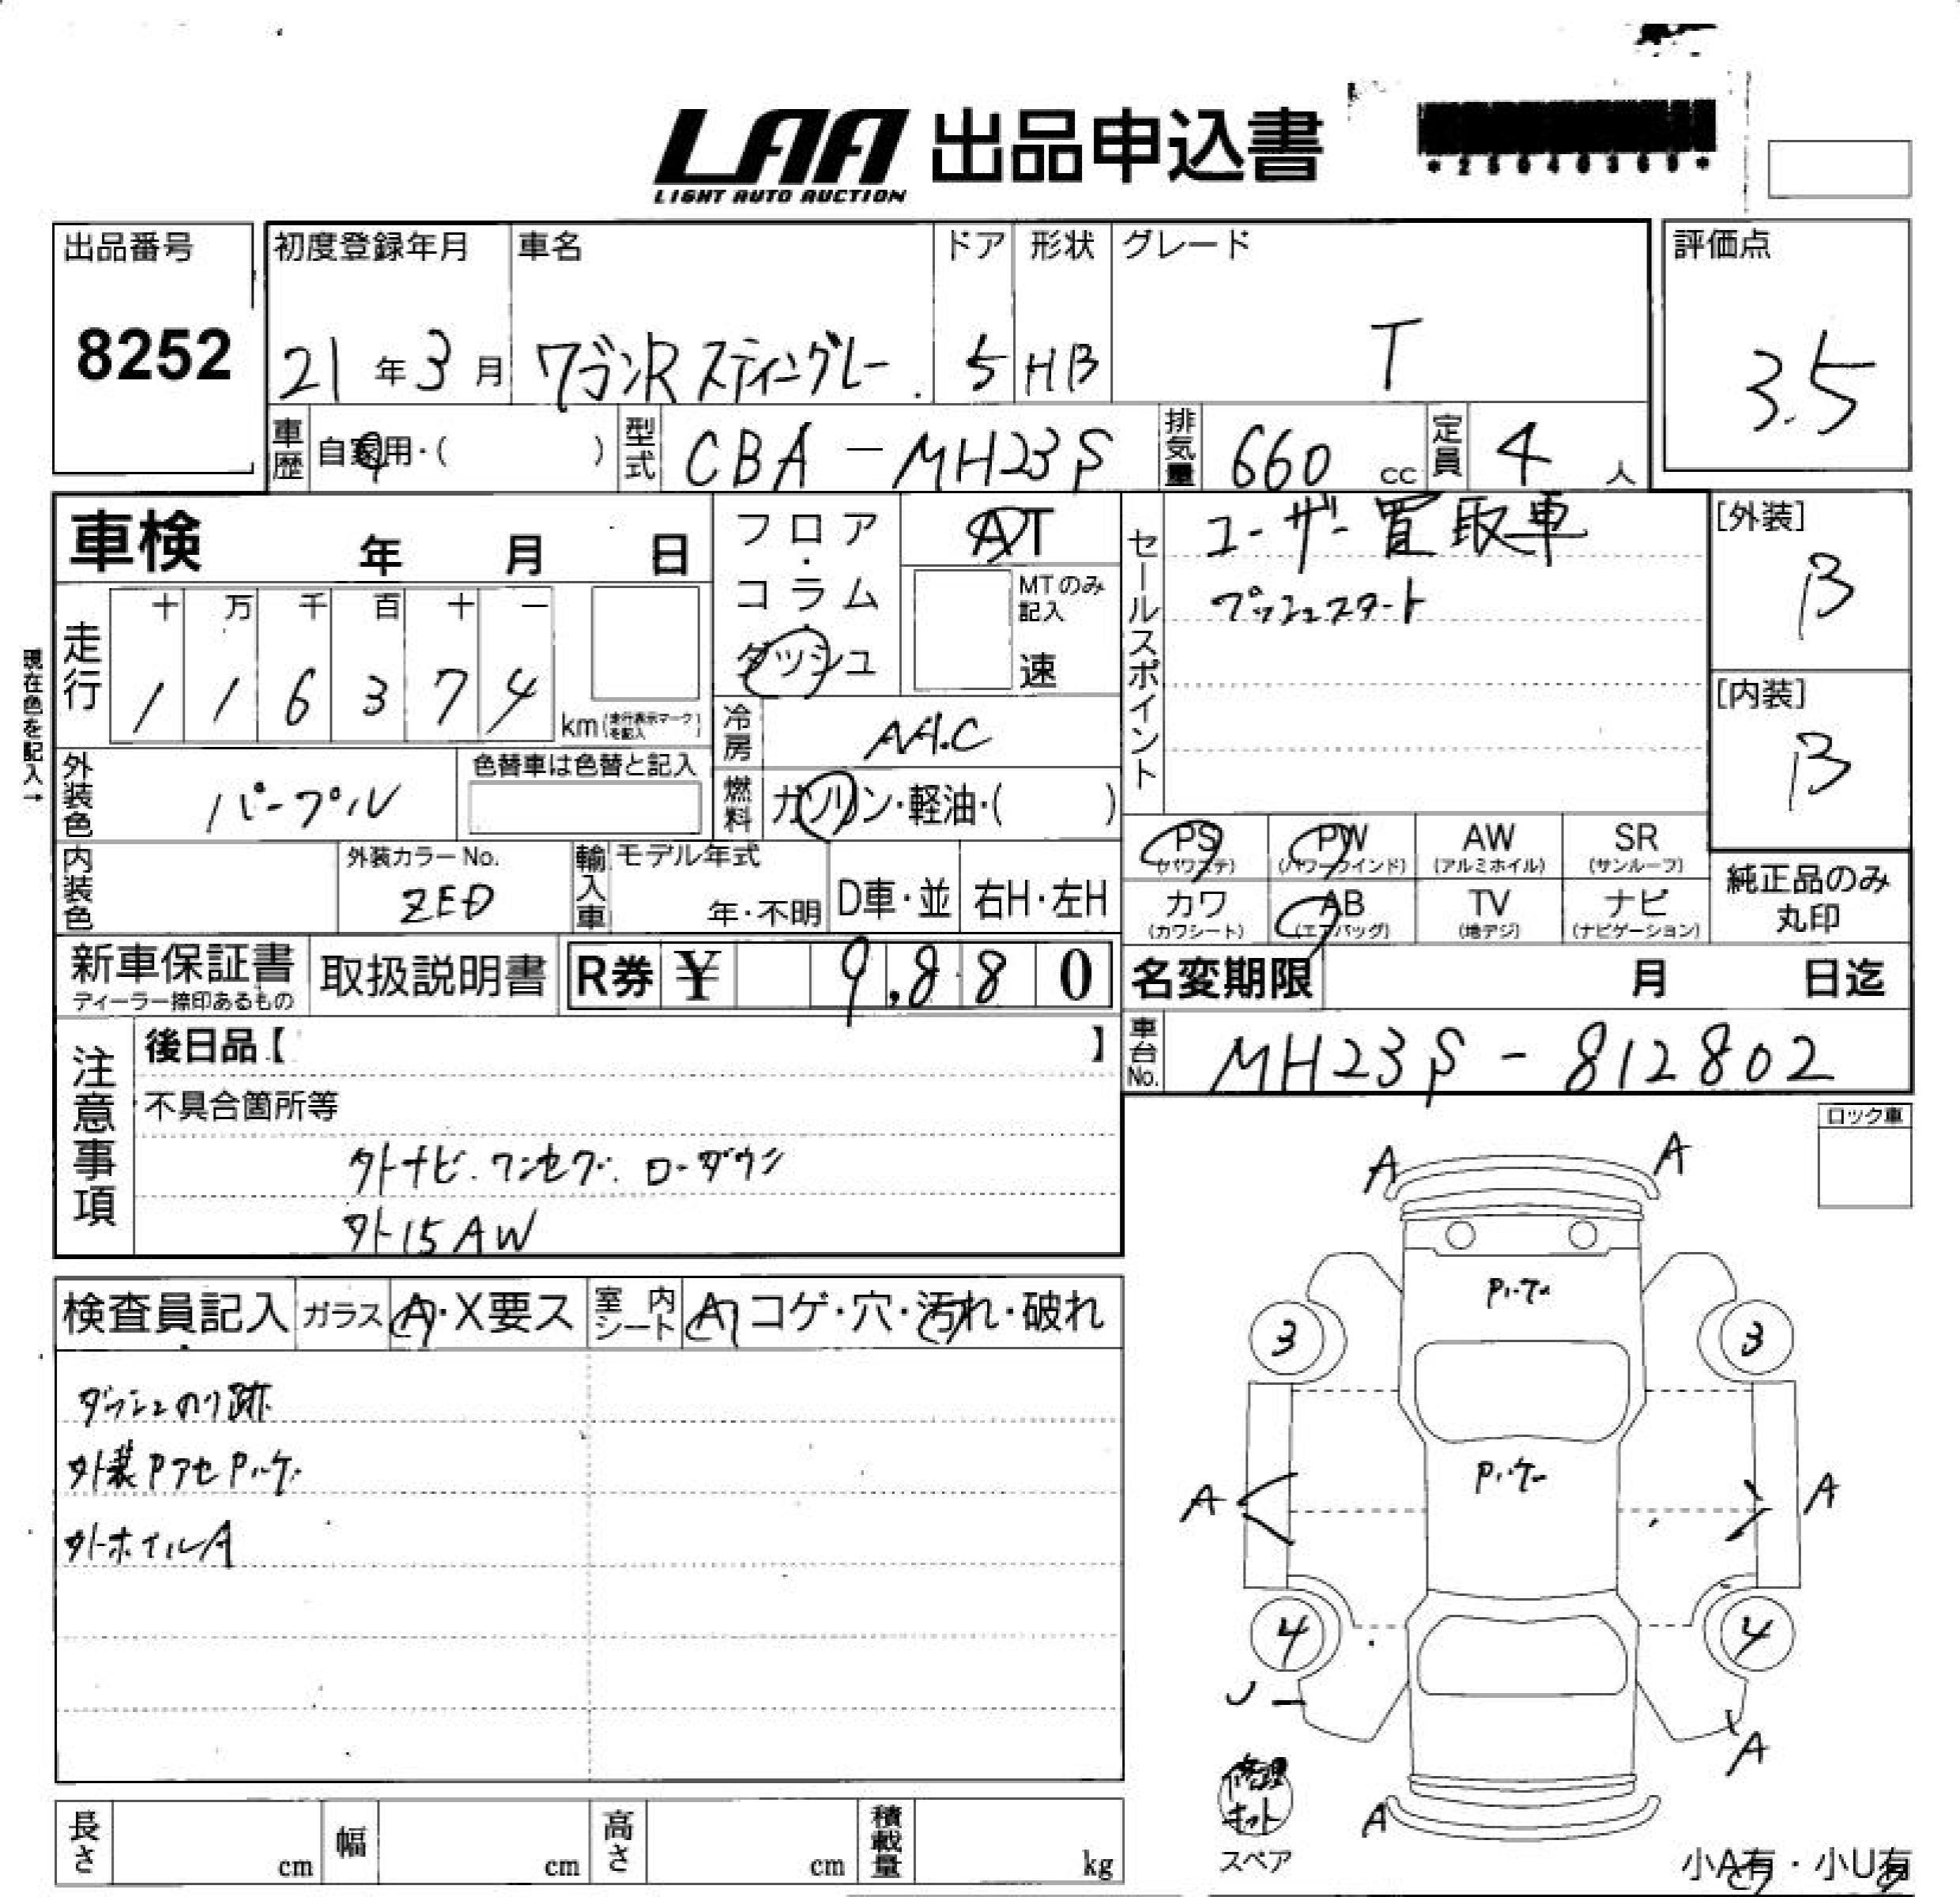 LAA 出品申込書
LIGHT AUTO AUCTION
出品番号
8252
初度登録年月
21年3月
車名
ワゴンR スティングレー
ドア
5
形状
HB
グレード
T
評価点
3.5
車歴
自家用・( )
型式
CBA-MH23S
排気量
660 cc
定員
4人
車検 年 月 日
フロア・コラム・ダッシュ
AT
MTのみ記入
速
セールスポイント
ユーザー買取車
プッシュスタート
[外装]
B
[内装]
B
現在色を記入→
走行
十 万 千 百 十 一
1 1 6 3 7 4
km(走行表示マークを記入)
冷房
AAC
燃料
ガソリン・軽油・( )
外装色
パープル
色替車は色替と記入
内装色
外装カラーNo.
ZED
輸入車
モデル年式
年・不明
D車・並
右H・左H
PS (パワステ)
PW (パワーウインド)
AW (アルミホイル)
SR (サンルーフ)
カワ (カワシート)
AB (エアバッグ)
TV (地デジ)
ナビ (ナビゲーション)
純正品のみ
丸印
新車保証書
ディーラー捺印あるもの
取扱説明書
R券 ¥ 9,880
名変期限 月 日迄
車台No.
MH23S-812802
注意事項
後日品【 】
不具合箇所等
外ナビ.ワンセグ.ローダウン
外15AW
ロック車
検査員記入
ガラス A・X要ス
室内シート A コゲ・穴・汚れ・破れ
ダッシュのり跡
外装Pアセ Pハゲ
外ホイルA
A A
Pハゲ
3 3
Pハゲ
A A
4 4
A
A
修理キット
スペア
小A有・小U有
長さ cm
幅 cm
高さ cm
積載量 kg